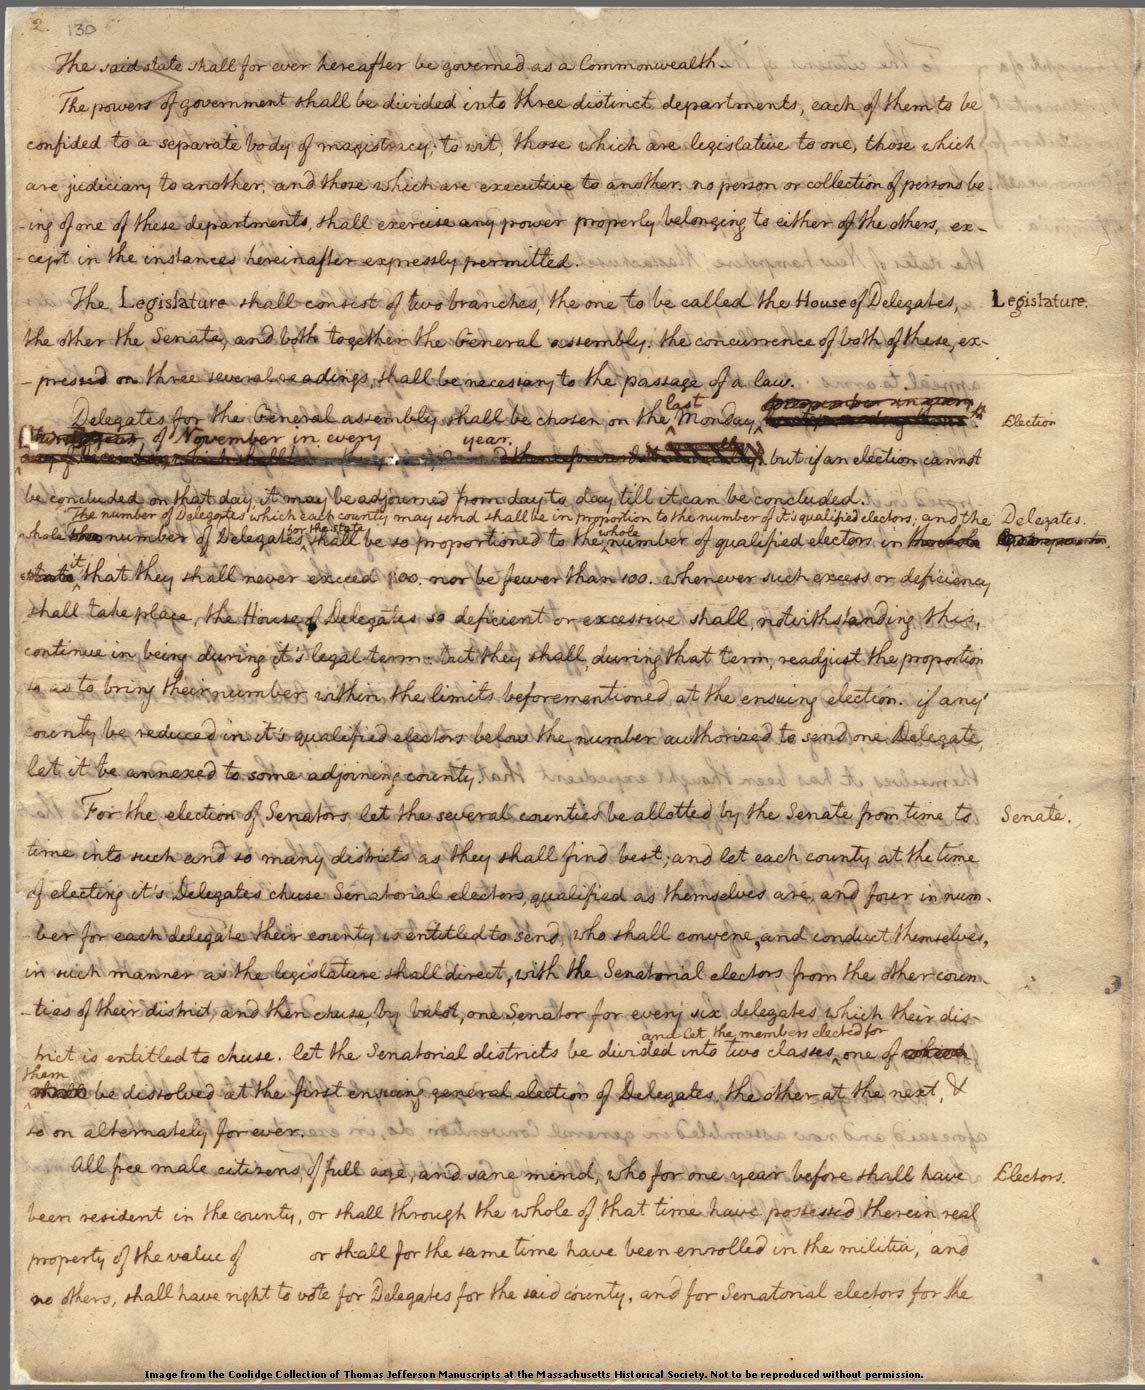 2. 130
The said state shall for ever hereafter be governed as a Commonwealth.
The powers of government shall be divided into three distinct departments, each of them to be
confided to a separate body of magistracy; to wit, those which are legislative to one, those which
are judiciary to another, and those which are executive to another. no person or collection of persons be-
-ing of one of these departments, shall exercise any power properly belonging to either of the others, ex-
-cept in the instances hereinafter expressly permitted.
The Legislature shall consist of two branches, the one to be called the House of Delegates, Legislature.
the other the Senate, and both together the General assembly. the concurrence of both of these, ex-
-pressed on three several readings, shall be necessary to the passage of a law.
last
Delegates for the General assembly shall be chosen on the Monday Election
of November in every year.
but if an election cannot
be concluded on that day it may be adjourned from day to day till it can be concluded.
The number of Delegates which each county may send shall be in proportion to the number of it's qualified electors; and the Delegates.
for the state whole
whole number of Delegates shall be so proportioned to the number of qualified electors in the whole
it
state that they shall never exceed 300. nor be fewer than 100. whenever such excess or deficiency
shall take place, the House of Delegates so deficient or excessive shall, notwithstanding this,
continue in being during it's legal term: but they shall, during that term, readjust the proportion
so as to bring their number within the limits beforementioned at the ensuing election. if any
county be reduced in it's qualified electors below the number authorized to send one Delegate,
let it be annexed to some adjoining county.
For the election of Senators let the several counties be allotted by the Senate from time to Senate.
time into such and so many districts as they shall find best; and let each county at the time
of electing it's Delegates chuse Senatorial electors, qualified as themselves are, and four in num-
-ber for each delegate their county is entitled to send, who shall convene, and conduct themselves,
in such manner as the legislature shall direct, with the Senatorial electors from the other coun-
-ties of their district, and then chuse, by balot, one Senator for every six delegates which their dis-
and let the members elected for
trict is entitled to chuse. let the Senatorial districts be divided into two classes, one of which
them
shall be dissolved at the first ensuing general election of Delegates, the other at the next, &
so on alternately for ever.
All free male citizens, of full age, and sane mind, who for one year before shall have Electors.
been resident in the county, or shall through the whole of that time have possessed therein real
property of the value of or shall for the same time have been enrolled in the militia, and
no others, shall have right to vote for Delegates for the said county, and for Senatorial electors for the
Image from the Coolidge Collection of Thomas Jefferson Manuscripts at the Massachusetts Historical Society. Not to be reproduced without permission.